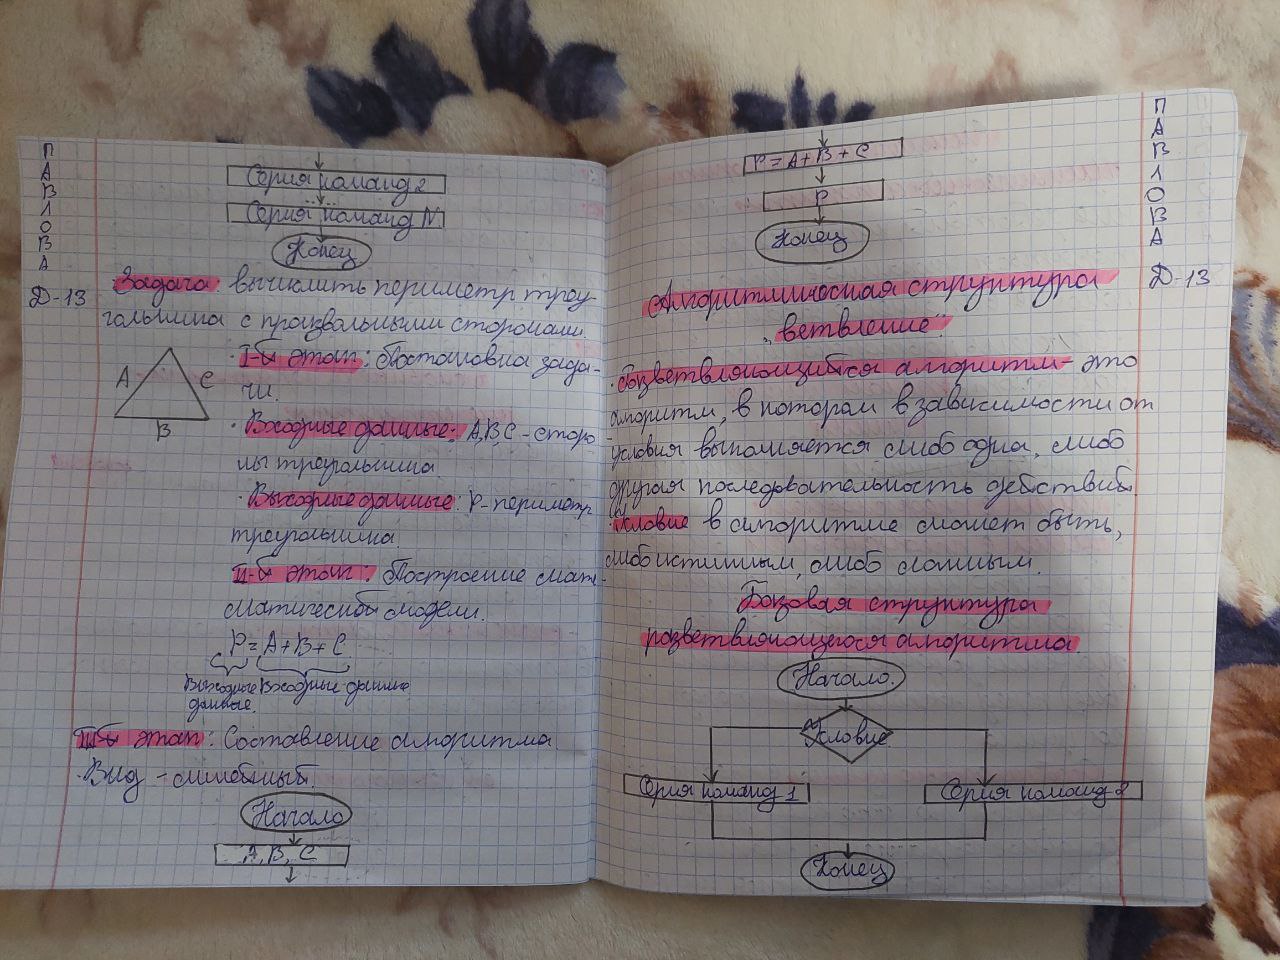 П
А
В
Л
О
В
А
Д-13
Серия команд 2
Серия команд N
Конец
Задача: вычислить периметр треу-
гольника с произвольными сторонами.
I-й этап: Постановка зада-
чи.
A
C
B
· Входные данные: A,B,C - сторо
ны треугольника.
· Выходные данные: P - периметр
треугольника.
II-й этап: Построение мате-
матической модели.
P = A + B + C
Выходные Входные данные
данные.
III-й этап: Составление алгоритма
· Вид - линейный.
Начало
A, B, C
P = A + B + C
P
Конец
П
А
В
Л
О
В
А
Д-13
Алгоритмическая структура
„ветвление"
· Разветвляющийся алгоритм - это
алгоритм, в котором в зависимости от
условия выполняется либо одна, либо
другая последовательность действий.
· Условие в алгоритме может быть,
либо истинным, либо ложным.
Базовая структура
разветвляющегося алгоритма.
Начало.
Условие
Серия команд 1
Серия команд 2
Конец